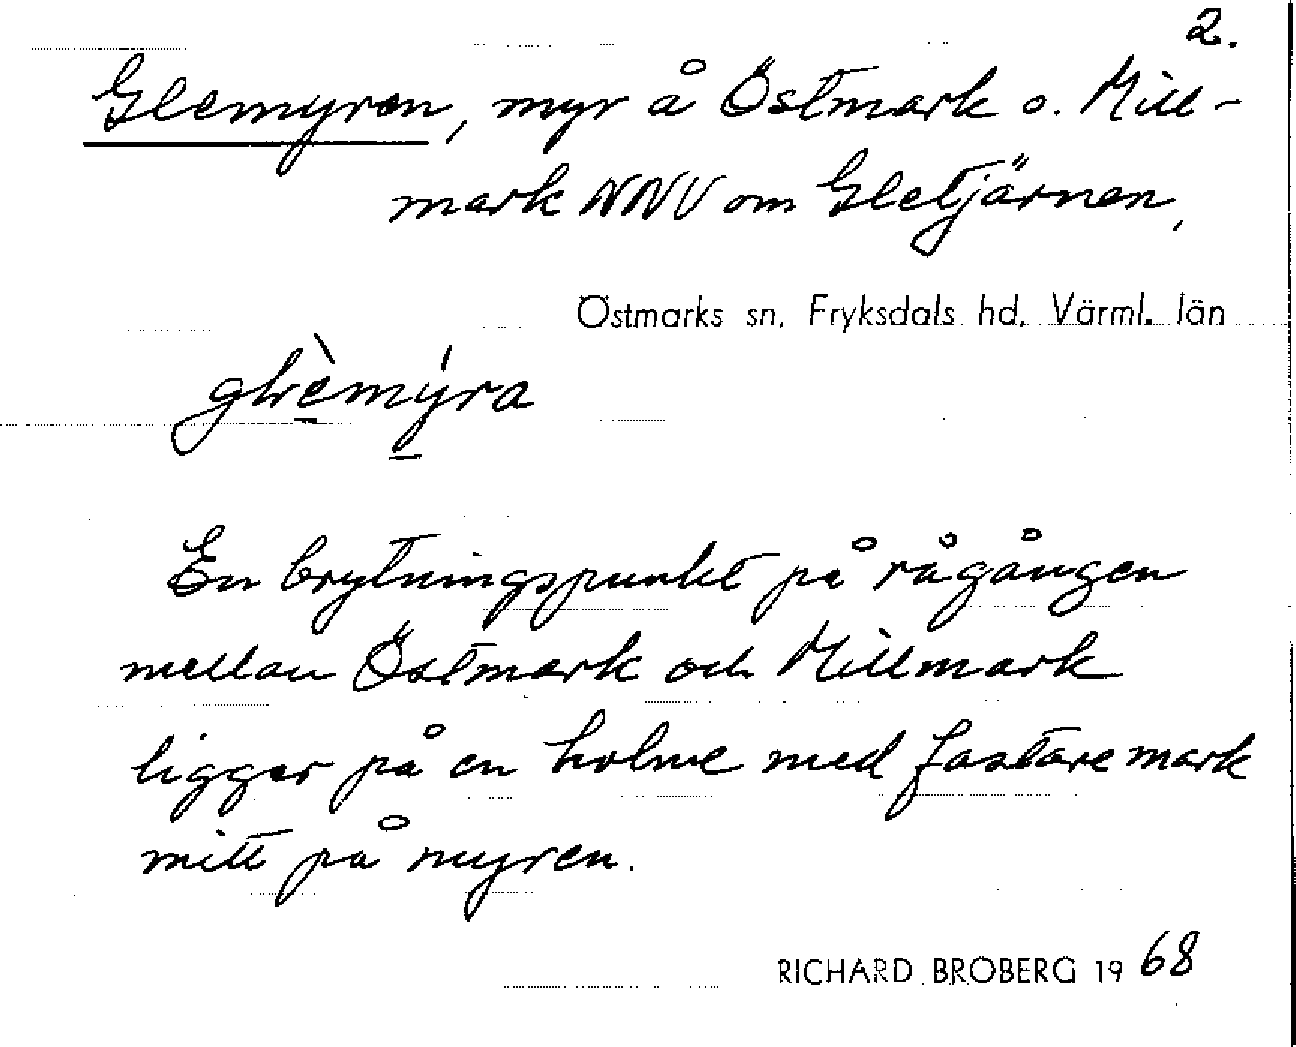 2.
Glemyren, myr å Östmark o. Mill-
mark NNV om Gletjärnen,
Östmarks sn, Fryksdals hd, Värml. län
En brytningspunkt på rågången
mellan Östmark och Millmark
ligger på en holme med fastare mark
mitt på myren.
RICHARD BROBERG 1968